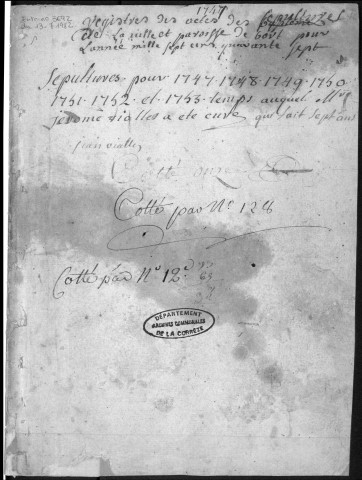 1747
Registres des actes des Sepultures
de La ville et paroisse de bort pour
L'année mille sept cens quarante sept
Sepultures pour 1747 1748 1749 1750
1751 1752 et 1753 temps auquel Mre
jerome vialles a ete curé qui fait sept ans
jean vialles
Cotté
Cotté par No 128
Cotté par No 12
DÉPARTEMENT
ARCHIVES COMMUNALES
DE LA CORREZE